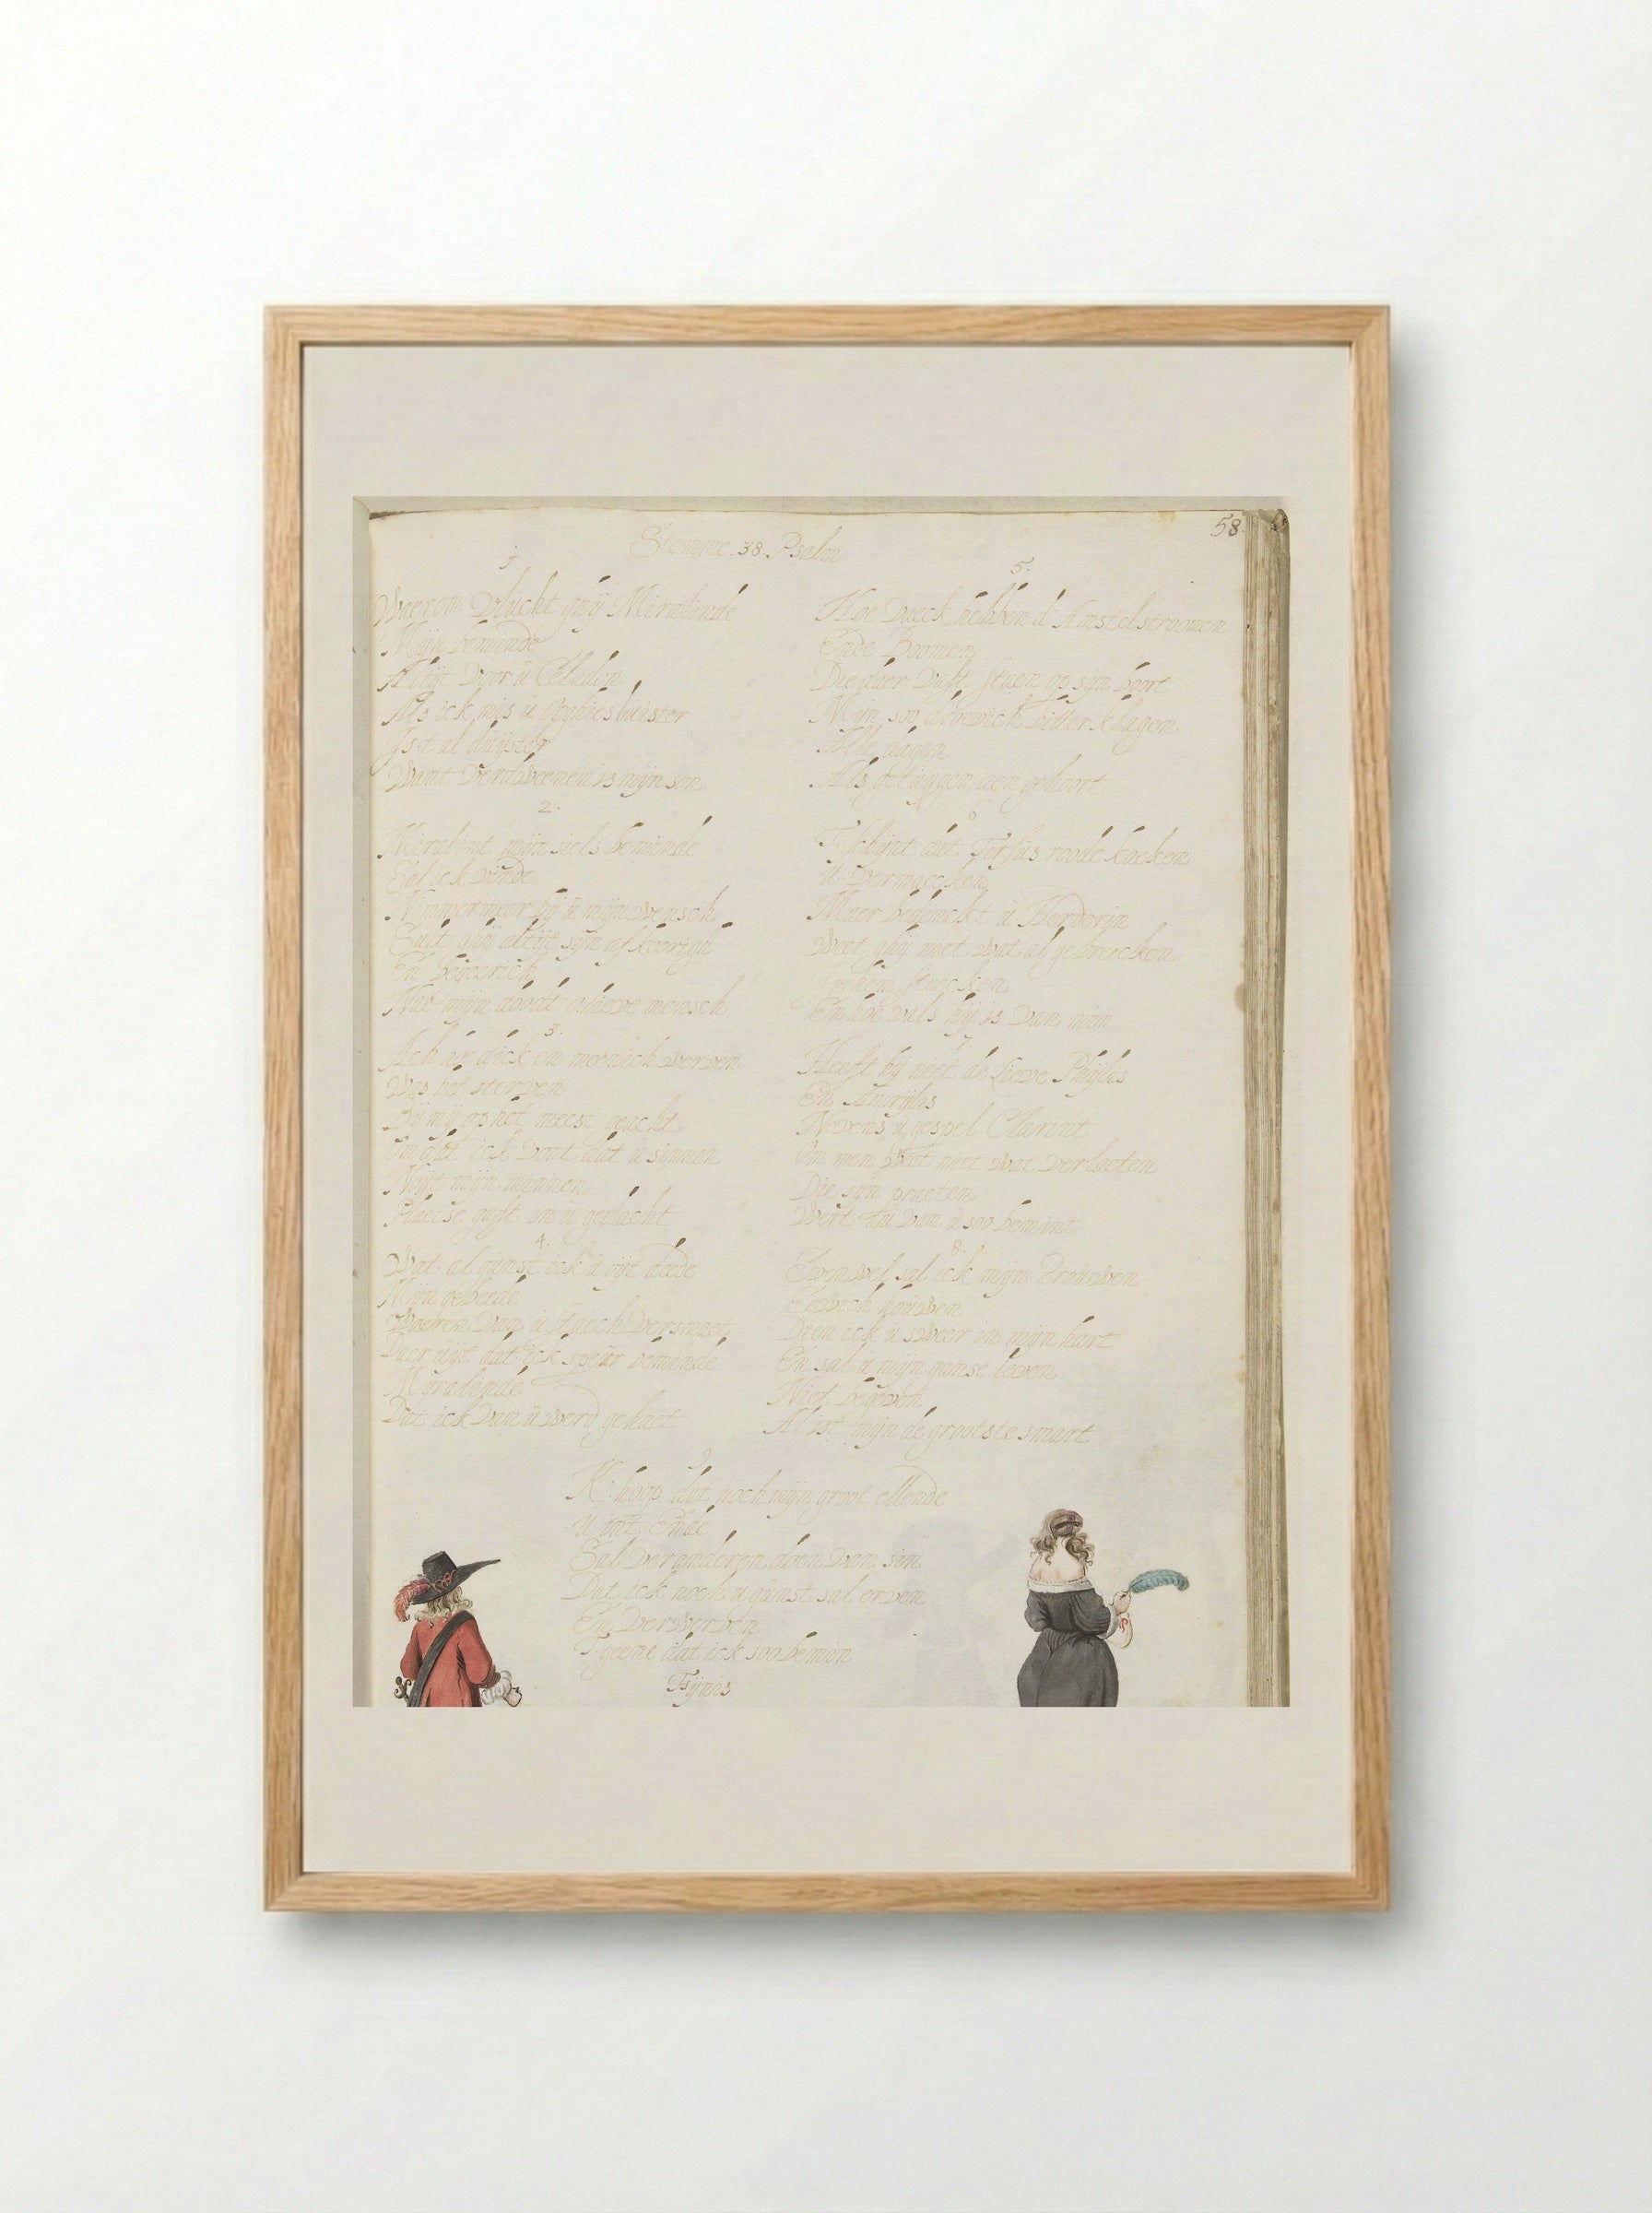 58
Stemme. 38. Psalm
1
Waerom Vlucht ghij Miralinde
Mijn beminde
Altijt Voor u Celadon
Als ick mis u luister
Is't al duijster
Want Verdweenen is mijn son
2.
Miralint mijn siels beminde
Sal ick vinde
Nimmermeer bij u mijn wensch
Sult ghij altijt sijn afkeerigh
En begeerich
Nae mijn doodt o lieve mensch
3.
Ach hoe dick en meenich werven
Was het sterven
Bij mij op het meest geacht
Omdat ick Vont dat u sinnen
Noijt mijn minnen
Plaetse gaft in u gedacht
4.
Wat al gunst ick u oijt deede
Mijn gebeede
Waeren Van u Versmaet
Daer uijt dat ick speur beminde
Miralinde
Dat ick Van u werd gehaet
5.
Hoe Vaeck hebben d' Amstelstroomen
Ende Boomen
Die daer Vast staen op sijn boort
Mijn soo droevich bitter klagen
Alle dagen
Als getuijgen aen gehoort
6
T schijnt dat Tirsus roode kaeken
U Vermaecken
Maer bedenckt u Herderin
Weet ghij niet wat al gebreecken
In hem steecken
En hoe Vals hij is Van min
7
Heeft hij niet de lieve Phijlis
En Amarijlis
Nevens u gespel Clarint
En men weet niet wat Verlaeten
Die sijn praeten
Wert Van u soo bemint
8.
Evenwel sal ick mijn Trouwen
Eewich houwen
Dien ick u sweer in mijn hart
En sal u mijn ganse leven
Niet begeven
Al ist mijn de grootste smart
9
K: hoop dat noch mijn groot ellende
U int Ende
Sal Veranderen doen Van sin
Dat ick noch u gunst sal erven
En Verwerven
T' geene dat ick soo bemin
Fijnis